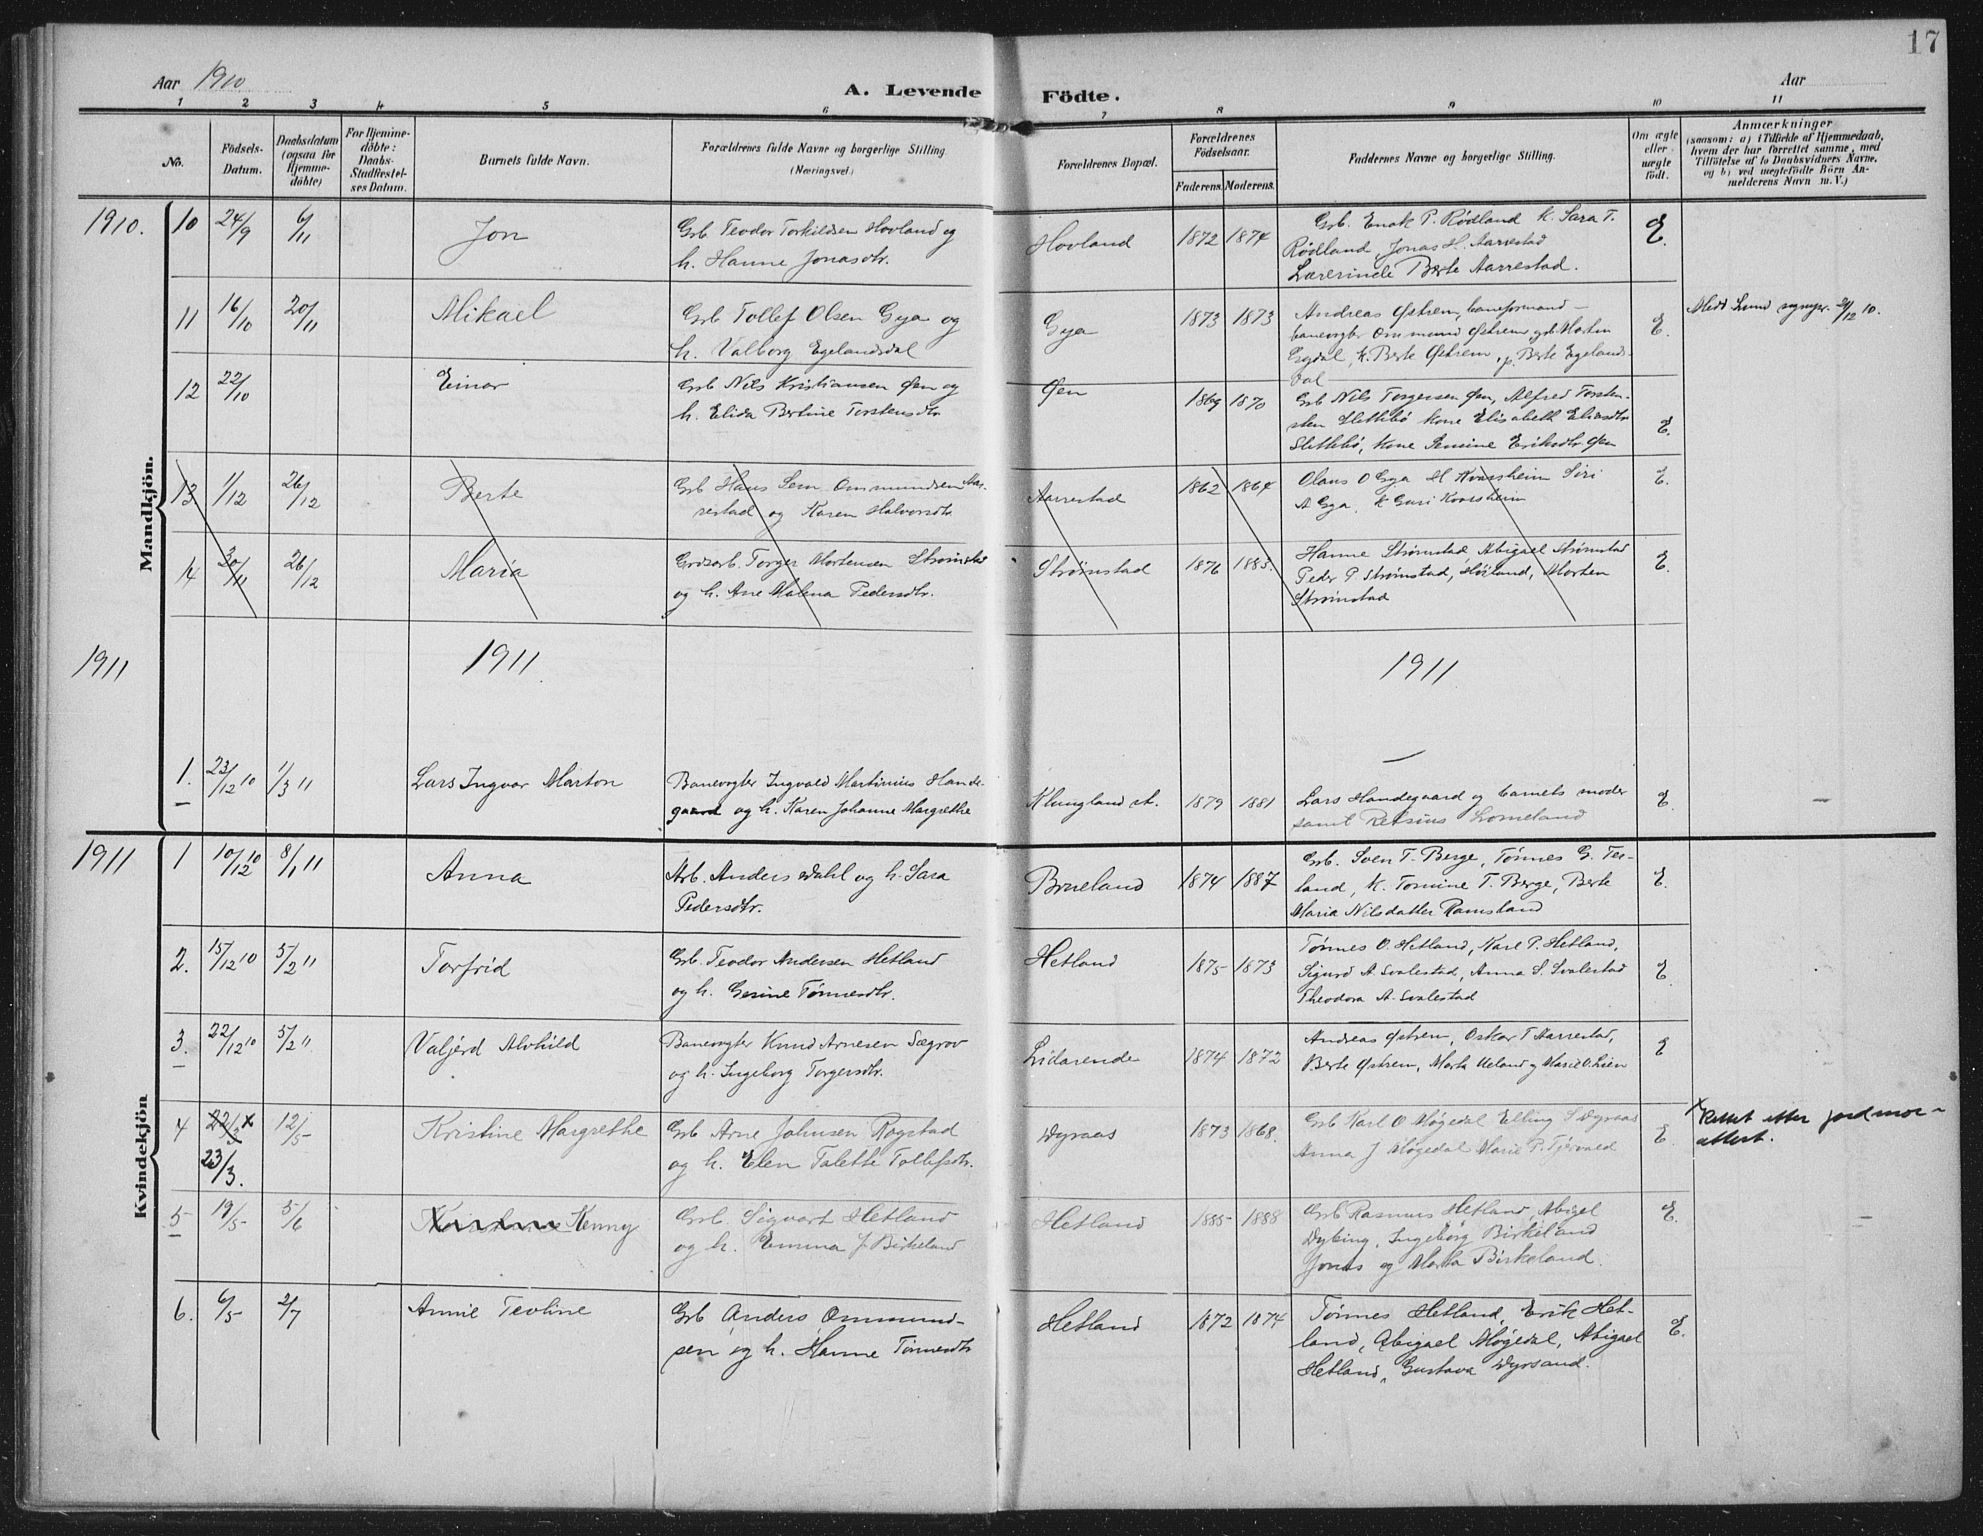 17
Aar 1910
A. Levende Födte.
Aar
1 2 3 4 5 6 7 8 9 10 11
No.
Födsels-Datum.
Daabsdatum (ogsaa för Hjemmedöbte)
For Hjemmedöbte: Daabs-Stadfæstelses Datum.
Barnets fulde Navn.
Forældrenes fulde Navne og borgerlige Stilling. (Næringsvei.)
Forældrenes Bopæl.
Forældrenes Födselsaar.
Faderens. Moderens.
Faddernes Navne og borgerlige Stilling.
Om ægte eller uægte födt.
Anmærkninger
(saasom: a) i Tilfælde af Hjemmedaab,
hvem der har forrettet samme, med
Tilföielse af to Daabsvidners Navne,
og b) ved uægtefödte Börn An-
melderens Navn m. V.)
Mandkjön.
1910. 10 24/9 6/11 Jon
Grb. Teodor Torkildsen Hovland og
h. Hanne Jonasdtr.
Hovland 1872 1874
Grb. Enok P. Rødland k. Sara T.
Rødland Jonas H. Aarrestad
Lærerinde Berte Aarrestad.
E.
11 16/10 20/11 Mikael
Grb Tollef Olsen Gya og
h. Valborg Egelandsdal
Gya 1873 1873
Andreas Østrem, baneformand
banevogter Ommund Østrem, grb. Morten
Eigdal, k. Berte Østrem, p. Berte Egelands-
dal
E.
Medt Lund sognepr. 21/12 10.
12 22/10 Einar
Grb Nils Kristiansen Øen og
h. Elida Bertine Torstensdtr
Øen 1869 1870
Grb Nils Torgersen Øen, Alfred Torsten-
sten Slettebø kone Elisabeth Eliasdtr
Slettebø, kone Semine Eriksdtr. Øen
E.
13 1/12 26/12 Berte
Grb Hans Sem Ommundsen Aar-
restad og Karen Halvorsdtr.
Aarrestad 1862 1864
Olaus O Gya H Kvarsheim Siri
A Gya, K Guri Kvarsheim
E.
14 30/11 26/12 Maria
Grdsarb. Torger Mortensen Strømstad
og h. Ane Malena Pedersdtr.
Strømstad 1876 1883.
Hanne Strømstad Abigael Strømstad
Peder P. Strømstad, Høiland, Morten
Strømstad
E.
1911 1911. 1911
1. 23/12 10 1/3 11 Lars Ingvar Marton
Banevogter Ingvald Martinius Hande-
gaard og h. Karen Johanne Margrethe
Klungland st. 1879 1881
Lars Handegaard og barnets moder
samt Retsius Lomeland
E. —
Kvindekjön
1911 1 10/12 10 8/1 11 Anna
Arb. Anders Dahl og h. Sara
Pedersdtr.
Brueland 1874 1887
Grb. Sven T. Berge, Tønnes G. Ter-
land, K. Tomine T. Berge, Berte
Maria Nilsdatter Ramsland
E.
2. 15/12 10 5/2 11 Torfrid
Grb. Teodor Andersen Hetland
og h. Gesine Tønnesdtr.
Hetland 1875 1873
Tønnes O. Hetland, Karl P. Hetland,
Sigurd A. Svalestad, Anna S. Svalestad
Theodora A. Svalestad
E.
3. 22/12 10 5/2 11 Valjerd Alvhild
Banevogter Knud Arnesen Sægrov
og h. Ingeborg Torgersdtr.
Lidarende 1874 1872
Andreas Østrem, Oskar T Aarrestad,
Berte Østrem, Marta Ueland og Marie O. Lien
E
4 22/3 x 12/5 Kristine Margrethe
23/3.
Grb Arne Johnsen Rogstad
og h. Elen Talette Tollefsdtr.
Dyraas 1873 1868.
Grb Karl O Møgedal Elling S Dyraas
Anna J Møgedal Marie P. Tjørvaed
E.
x Rettet etter jordmor-
attest.
5 19/5 5/6 Kenny
Grb. Sigvart Hetland
og h. Emma J. Birkeland
Hetland 1885 1888
Grb Rasmus Hetland, Abigel
Dybing, Ingebørg Birkeland
Jonas og Marta Birkeland.
E.
6. 6/5 2/7 Annie Teoline
Grb Anders Ommund-
sen og h. Hanne Tønnesdtr
Hetland 1872 1874
Tønnes Hetland, Erik Het-
land, Abigael Møgedal, Abigael
Hetland, Gustava Dyrsand.
E.